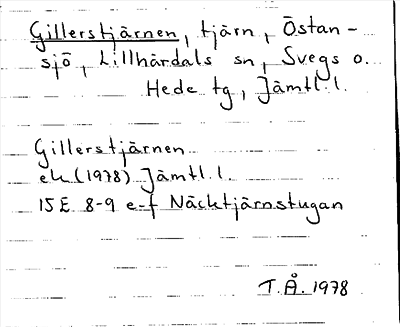 Gillerstjärnen, tjärn, Östan-
sjö, Lillhärdals sn, Svegs o.
Hede tg, Jämtl. l.
Gillerstjärnen
ek (1978) Jämtl. l.
15E 8-9 e-f Näcktjärnstugan
T.Å. 1978